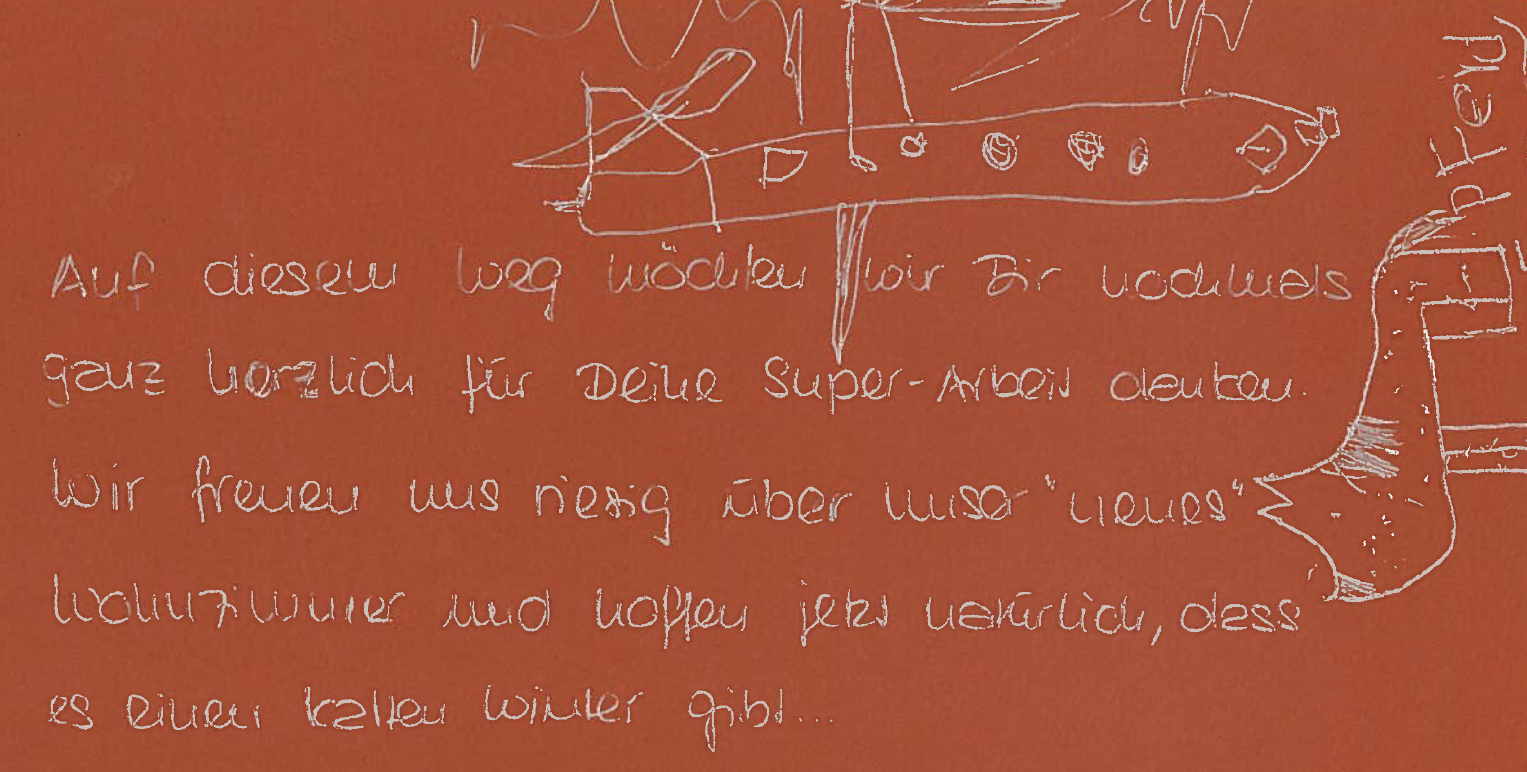 Auf diesem Weg möchten wir Dir nochmals
ganz herzlich für Deine Super-Arbeit danken.
Wir freuen uns riesig über unser "neues"
Wohnzimmer und hoffen jetzt natürlich, dass
es einen kalten Winter gibt...